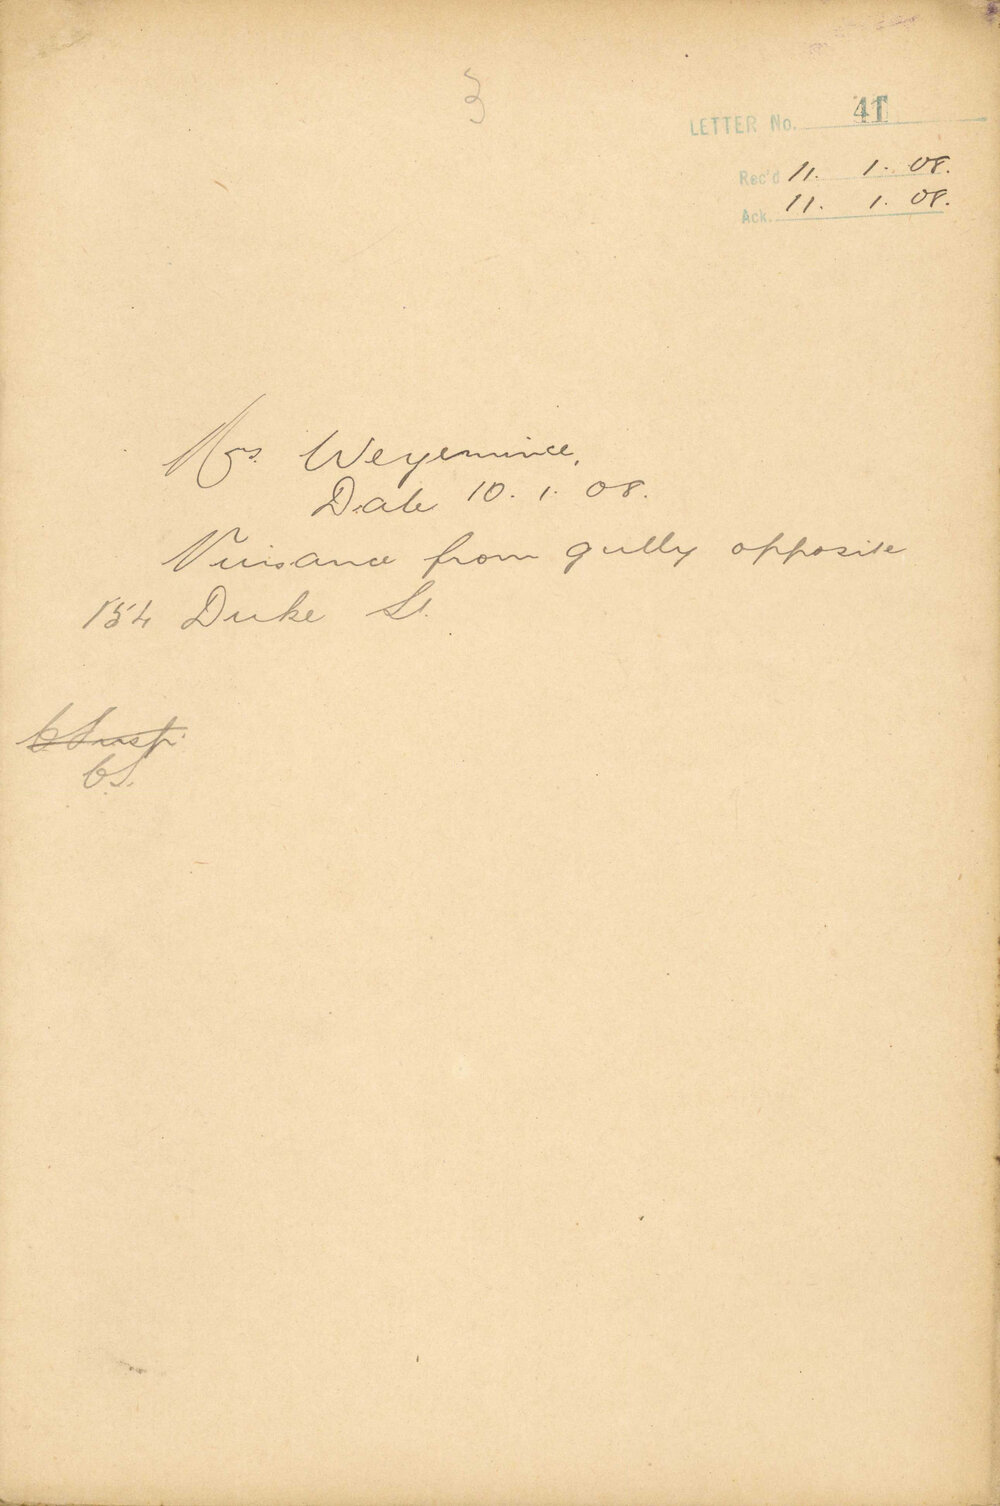 3
LETTER No. 41
Rec'd 11. 1. 08.
Ack. 11. 1. 08.
Mrs. Weyemince,
Date 10. 1. 08.
Nuisance from gully opposite
154 Duke St.
C S Insp.
C.S.